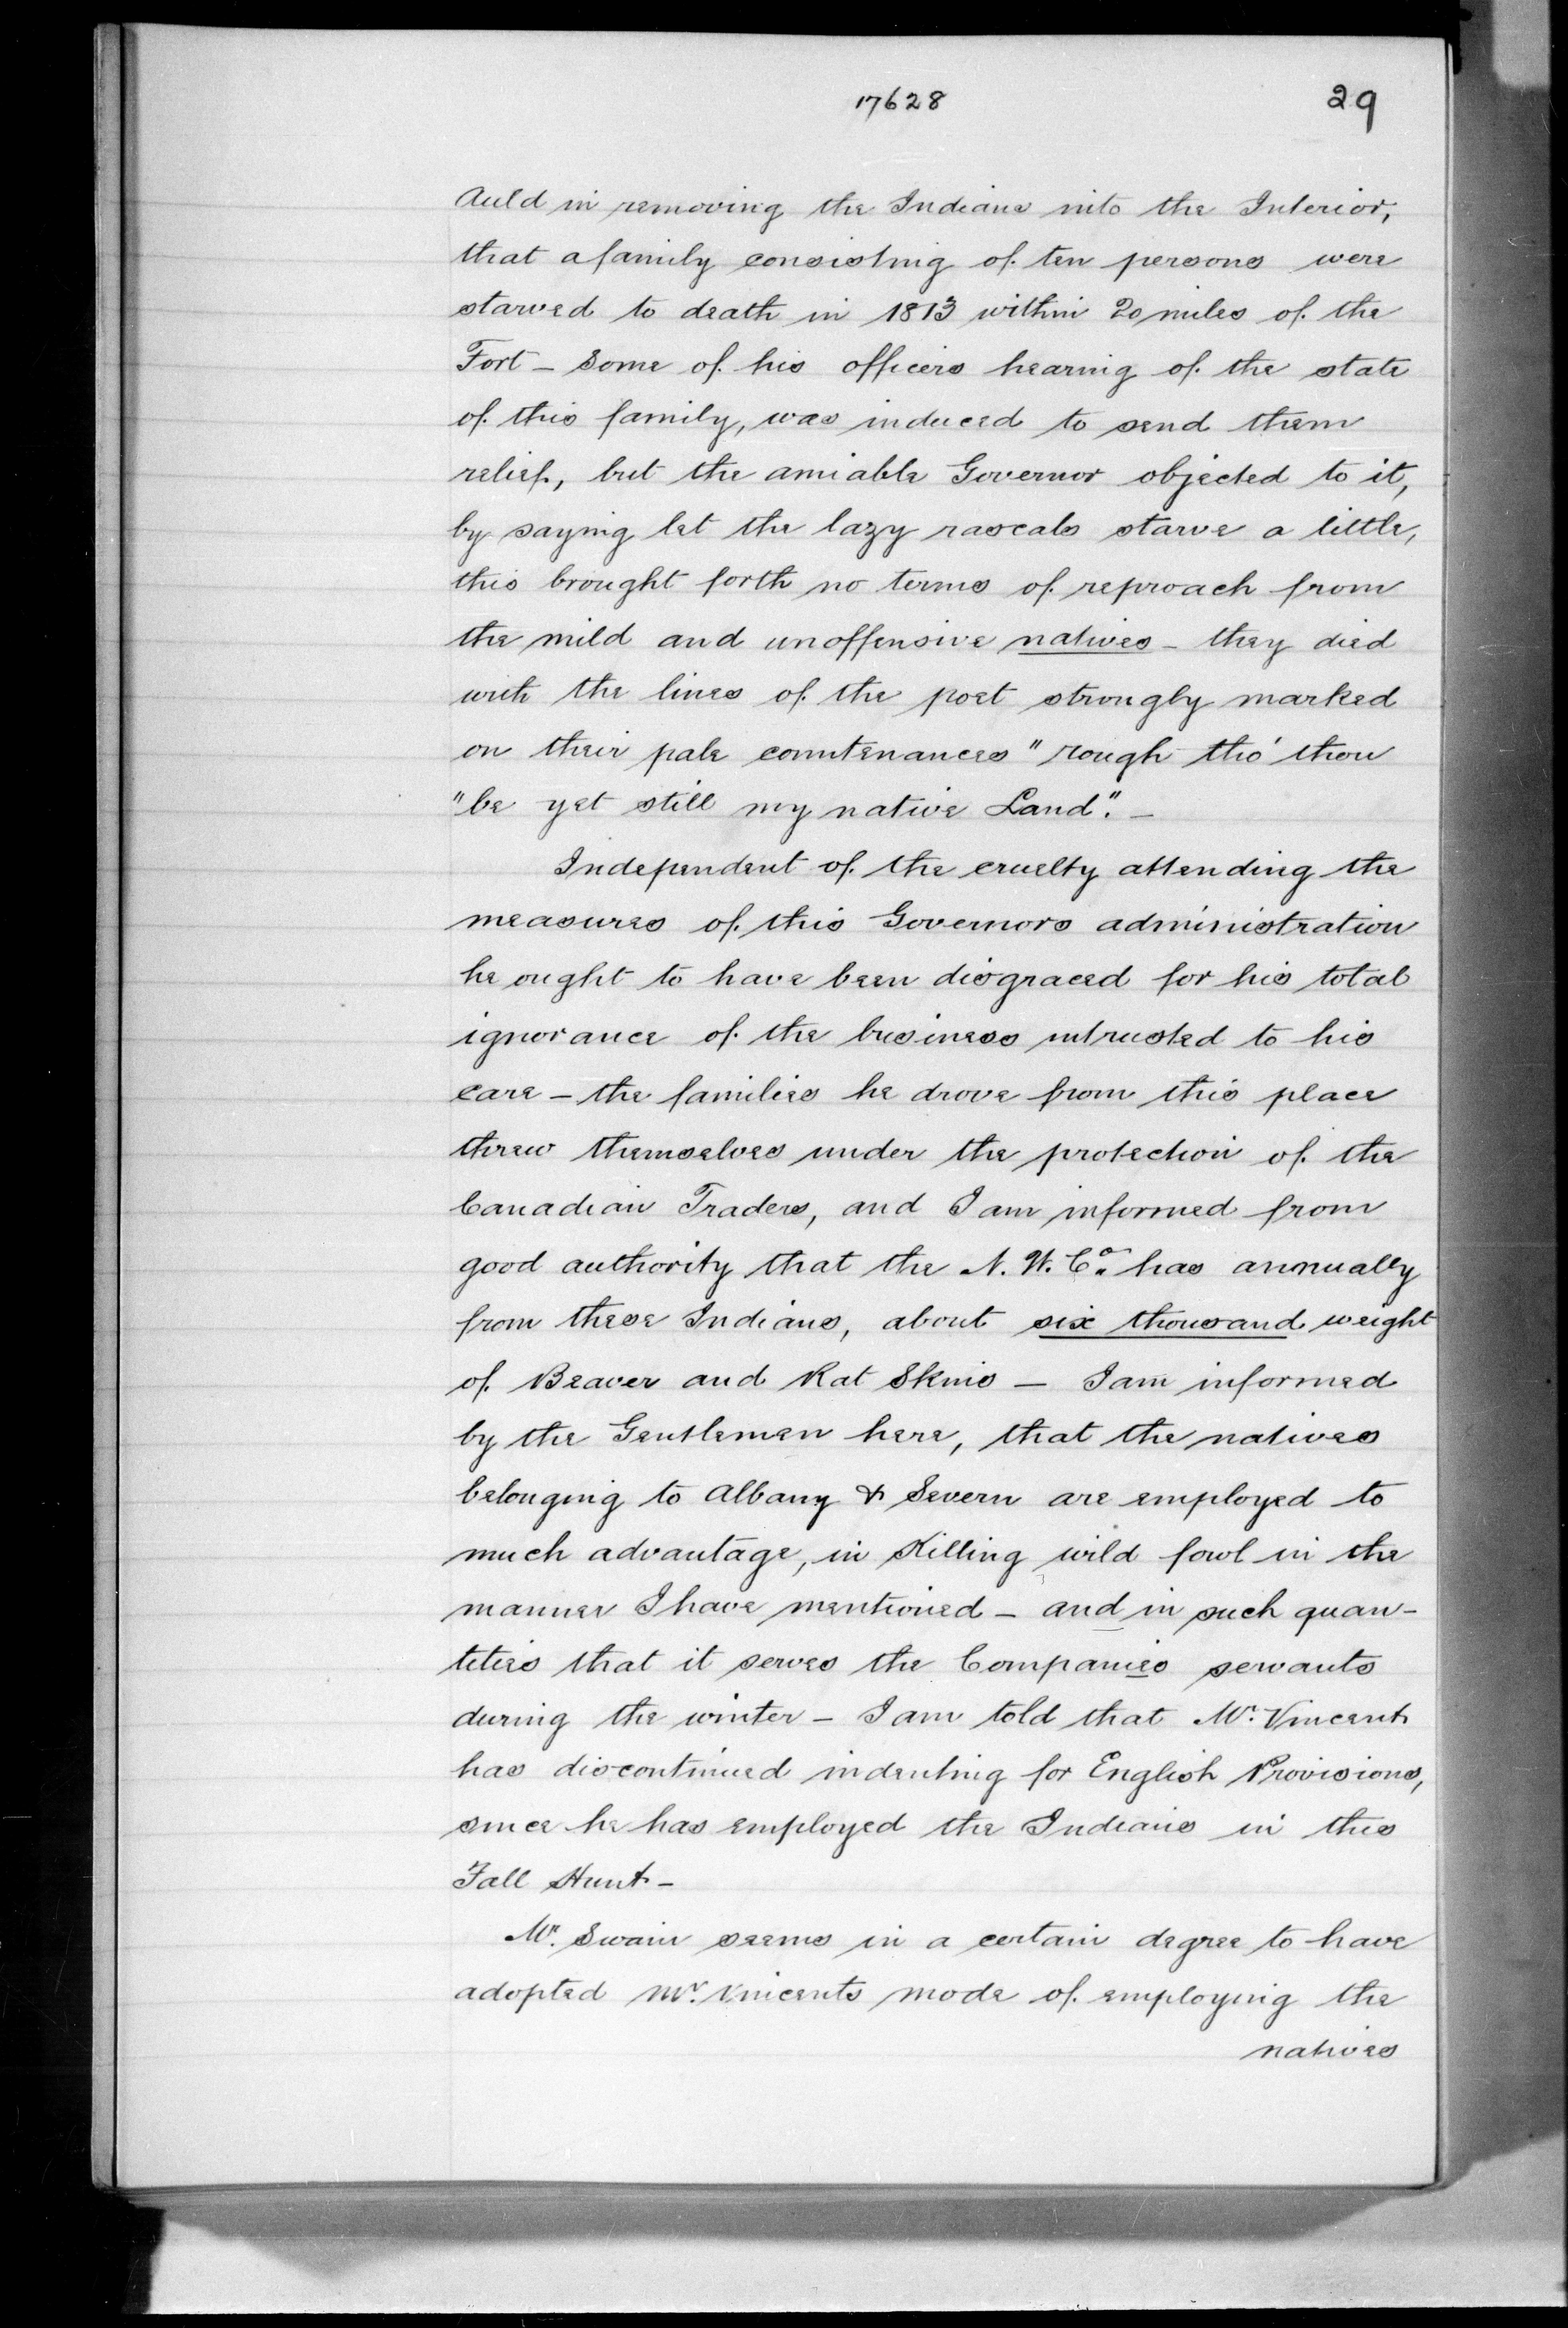 17628
29
Auld in removing the Indians into the Interior,
that a family consisting of ten persons were
starved to death in 1813 within 20 miles of the
Fort - Some of his officers hearing of the state
of this family, was induced to send them
relief, but the amiable Governor objected to it,
by saying let the lazy rascals starve a little,
this brought forth no terms of reproach from
the mild and unoffensive natives - they died
with the lines of the poet strongly marked
on their pale countenances "rough tho' thou
"be yet still my native Land". -
Independent of the cruelty attending the
measures of this Governors administration
he ought to have been disgraced for his total
ignorance of the business intrusted to his
care - the families he drove from this place
threw themselves under the protection of the
Canadian Traders, and I am informed from
good authority that the N. W. Co. has annually
from these Indians, about six thousand weight
of Beaver and Rat Skins - I am informed
by the Gentlemen here, that the natives
belonging to Albany & Severn are employed to
much advantage, in Killing wild fowl in the
manner I have mentioned - and in such quan-
tities that it serves the Companies servants
during the winter - I am told that Mr. Vincent
has discontinued indenting for English Provisions,
since he has employed the Indians in this
Fall Hunt -
Mr. Swain seems in a certain degree to have
adopted Mr. Vincents mode of employing the
natives